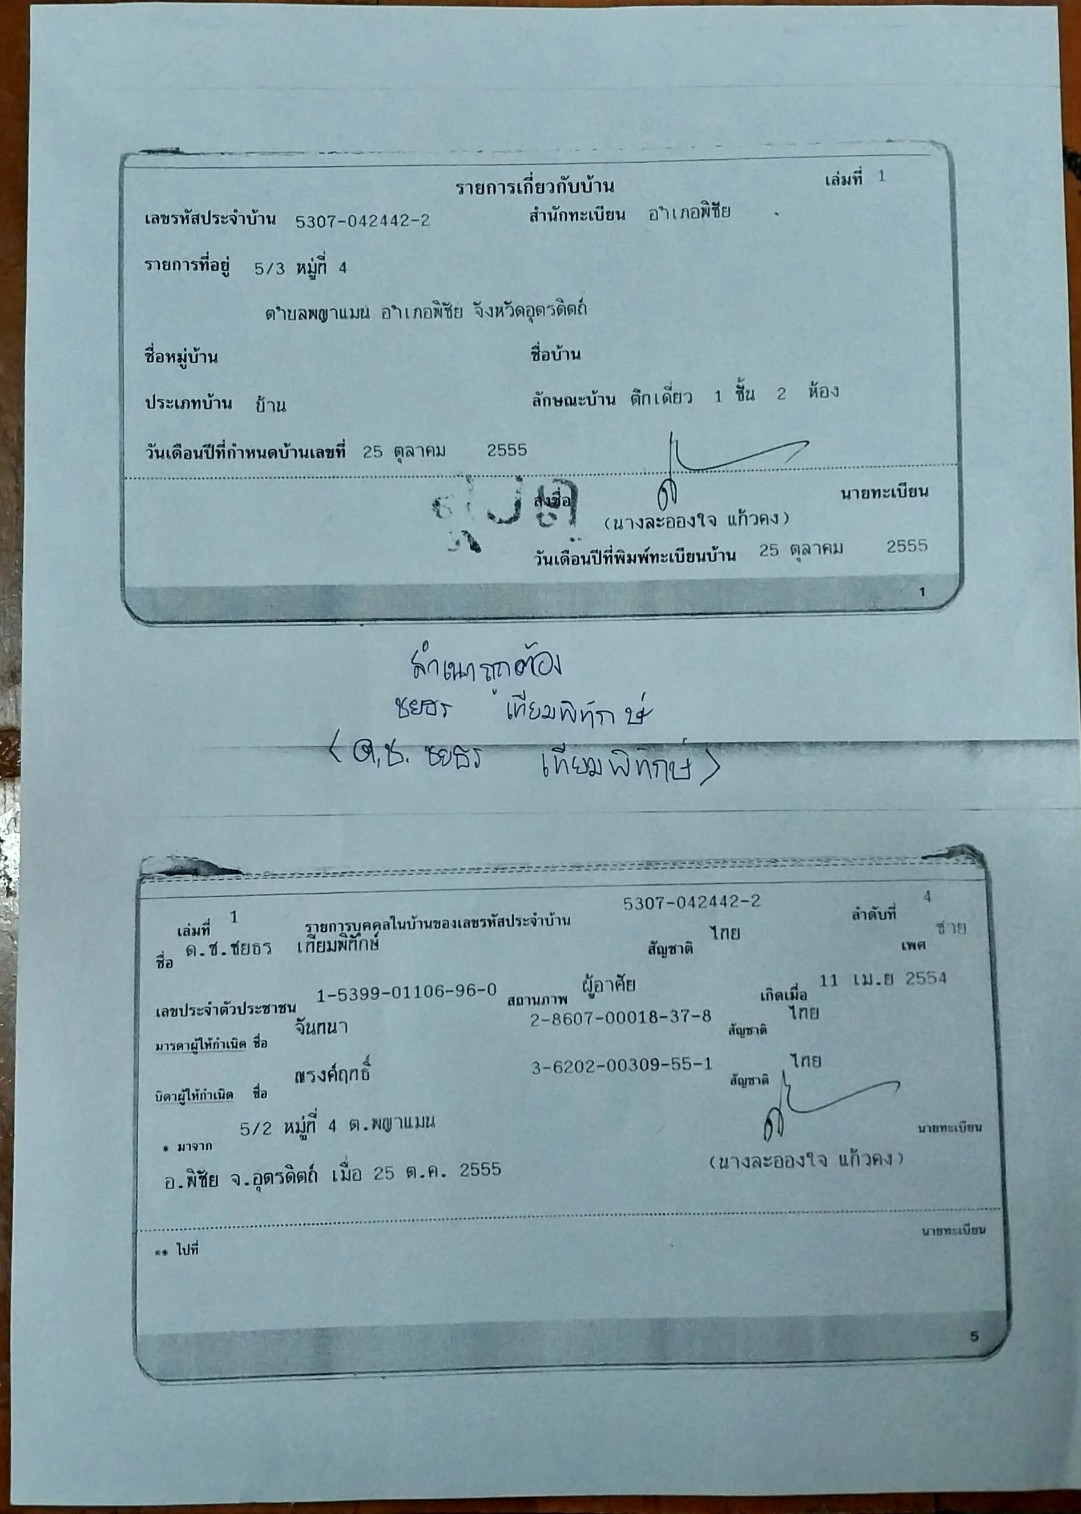 รายการเกี่ยวกับบ้าน เล่มที่ 1
เลขรหัสประจำบ้าน 5307-042442-2 สำนักทะเบียน อำเภอพิชัย
รายการที่อยู่ 5/3 หมู่ที่ 4
ตำบลพญาแมน อำเภอพิชัย จังหวัดอุตรดิตถ์
ชื่อหมู่บ้าน ชื่อบ้าน
ประเภทบ้าน บ้าน ลักษณะบ้าน ตึกเดี่ยว 1 ชั้น 2 ห้อง
วันเดือนปีที่กำหนดบ้านเลขที่ 25 ตุลาคม 2555
ลงชื่อ นายทะเบียน
(นางละอองใจ แก้วคง)
วันเดือนปีที่พิมพ์ทะเบียนบ้าน 25 ตุลาคม 2555
1
สำเนาถูกต้อง
ชยธร เทียมพิทักษ์
(ด.ช. ชยธร เทียมพิทักษ์)
เล่มที่ 1 รายการบุคคลในบ้านของเลขรหัสประจำบ้าน 5307-042442-2 ลำดับที่ 4
ชื่อ ด.ช.ชยธร เทียมพิทักษ์ สัญชาติ ไทย เพศ ชาย
เลขประจำตัวประชาชน 1-5399-01106-96-0 สถานภาพ ผู้อาศัย เกิดเมื่อ 11 เม.ย 2554
มารดาผู้ให้กำเนิด ชื่อ จันทนา 2-8607-00018-37-8 สัญชาติ ไทย
บิดาผู้ให้กำเนิด ชื่อ ณรงค์ฤทธิ์ 3-6202-00309-55-1 สัญชาติ ไทย
* มาจาก 5/2 หมู่ที่ 4 ต.พญาแมน นายทะเบียน
อ.พิชัย จ.อุตรดิตถ์ เมื่อ 25 ต.ค. 2555 (นางละอองใจ แก้วคง)
** ไปที่ นายทะเบียน
5